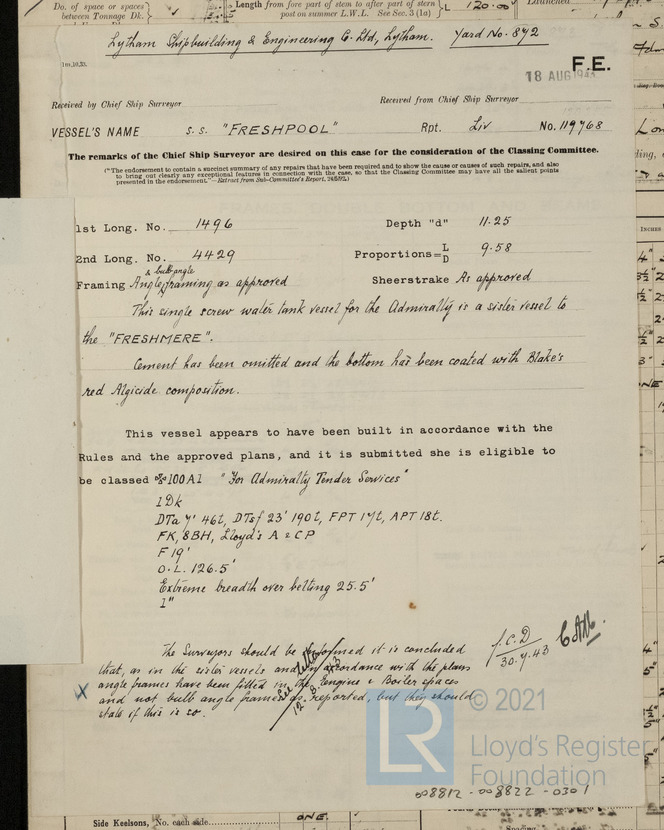 Do. of space or spaces
between Tonnage Dk.
Length from fore part of stem to after part of stern
post on summer L.W.L. See Sec. 3 (1a)
L 120.00
Launched
Lytham Shipbuilding & Engineering Co. Ltd, Lytham. Yard No. 872
1m,10,33.
F.E.
18 AUG 1943
Received by Chief Ship Surveyor
Received from Chief Ship Surveyor
VESSEL'S NAME S.S. "FRESHPOOL" Rpt. Liv No. 119768
The remarks of the Chief Ship Surveyor are desired on this case for the consideration of the Classing Committee.
("The endorsement to contain a succinct summary of any repairs that have been required and to show the cause or causes of such repairs, and also
to bring out clearly any exceptional features in connection with the case, so that the Classing Committee may have all the salient points
presented in the endorsement."—Extract from Sub-Committee's Report, 24/5/92.)
1st Long. No. 1496 Depth "d" 11.25
2nd Long. No. 4429 Proportions = L/D 9.58
& bulb angle
Framing Angle framing as approved Sheerstrake As approved
This single screw water tank vessel for the Admiralty is a sister vessel to
the "FRESHMERE".
Cement has been omitted and the bottom has been coated with Blake's
red Algicide composition.
This vessel appears to have been built in accordance with the
Rules and the approved plans, and it is submitted she is eligible to
be classed ✠100A1 "For Admiralty Tender Services"
1Dk
DTa 7' 46t, DTsf 23' 190t, FPT 17t, APT 18t.
FK, 8BH, Lloyd's A & CP
F 19'
O.L. 126.5'
Extreme breadth over belting 25.5'
1"
The Surveyors should be informed it is concluded
that, as in the sister vessels and in accordance with the plans
angle frames have been fitted in the Engine & Boiler spaces
and not bulb angle frames as reported, but they should
state if this is so.
X
f.C.D
30.7.43
© 2021
LR
Lloyd's Register
Foundation
008812-008822-0301
Side Keelsons, No. each side ONE.
INCHES